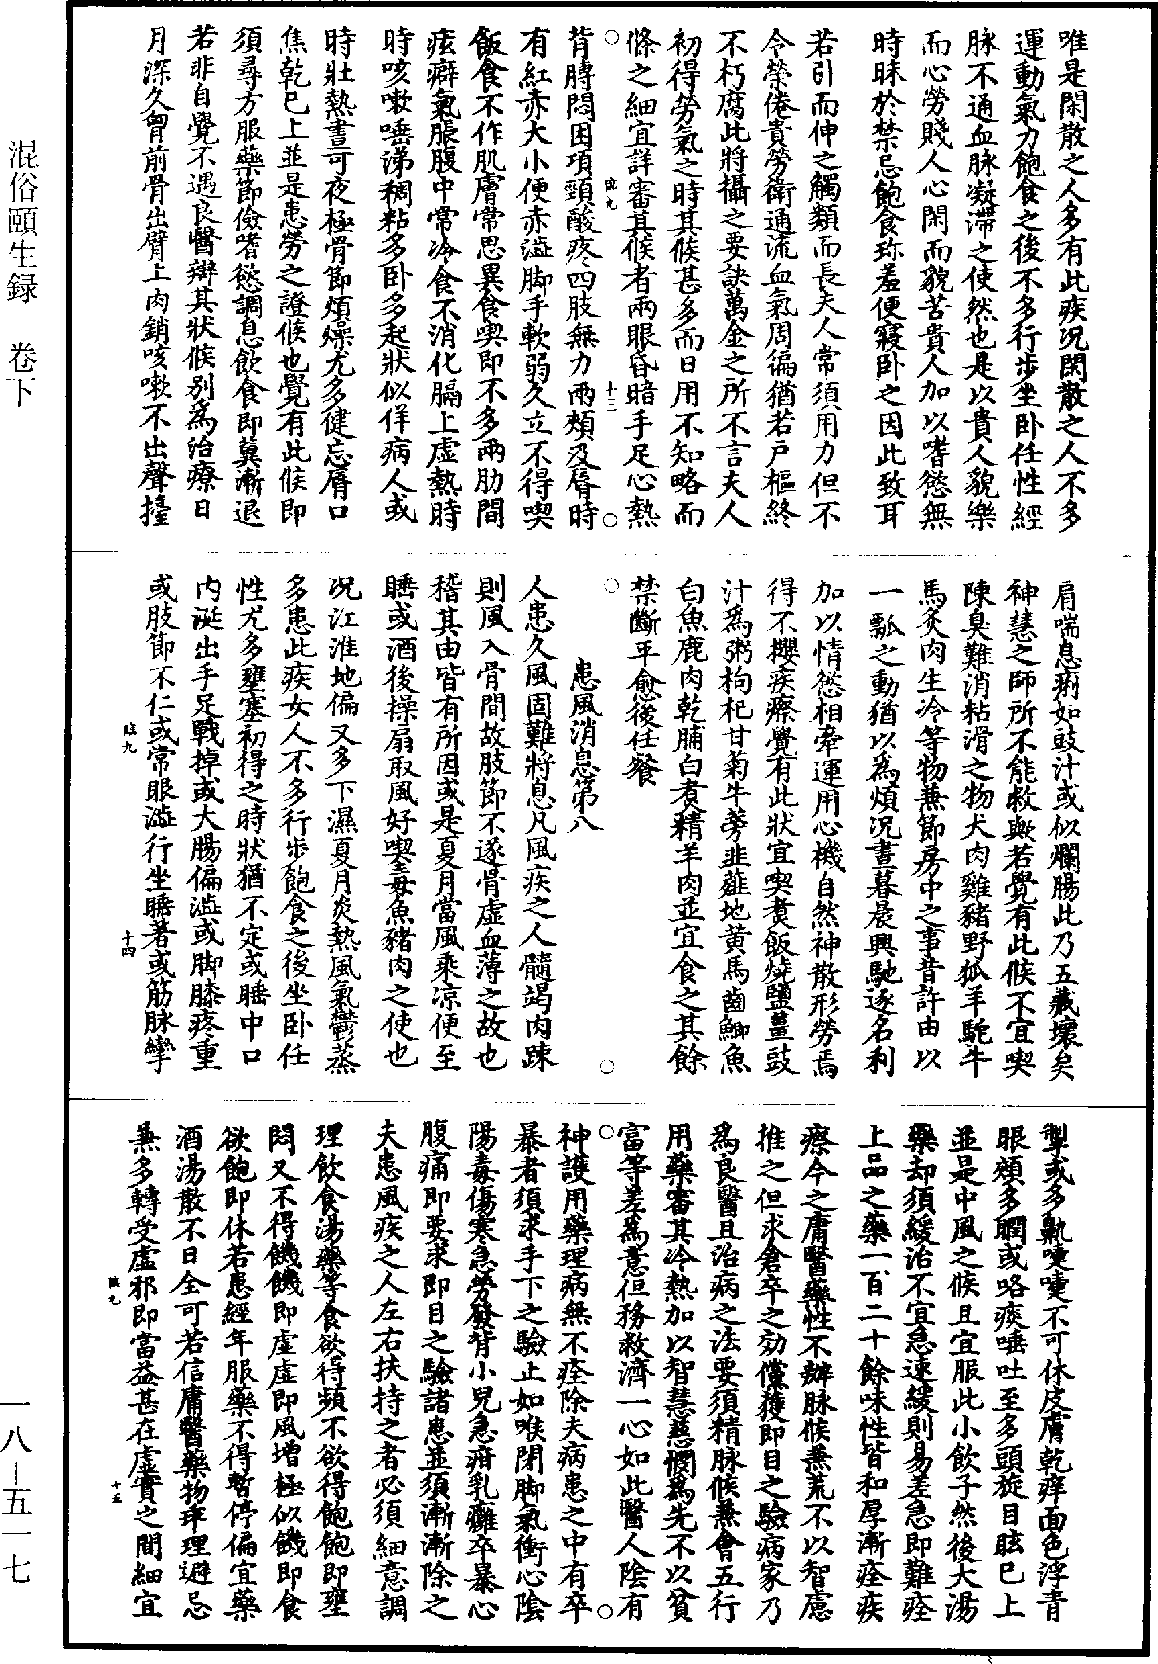 混俗頤生録　卷下
唯是閑散之人多有此疾況閑散之人不多
運動氣力飽食之後不多行步坐卧任性經
脉不通血脉凝滯之使然也是以貴人貌樂
而心勞賤人心閑而貌苦貴人加以嗜慾無
時昧於禁忌飽食珎羞便寢卧之因此致耳
若引而伸之觸類而長夫人常須用力但不
令榮倦貴勞衛通流血氣周徧猶若户樞終
不朽腐此將攝之要訣萬金之所不言夫人
初得勞氣之時其候甚多而日用不知略而
條之細宜詳審其候者兩眼昏暗手足心熱
背膊悶困項頸酸疼四肢無力兩頰及脣時
有紅赤大小便赤澁脚手軟弱久立不得喫
飯食不作肌膚常思異食喫即不多兩肋間
痃癖氣脹腹中常冷食不消化膈上虛熱時
時咳嗽唾涕稠粘多卧多起狀似佯病人或
時壯熱晝可夜極骨節煩燥尤多健忘脣口
焦乾已上並是患勞之證候也覺有此候即
須尋方服藥節儉嗜慾調息飲食即冀漸退
若非自覺不遇良醫辯其狀候别爲治療日
月深久胷前骨出臂上肉銷咳嗽不出聲擡
肩喘息痢如豉汁或似爛腸此乃五藏壞矣
神慧之師所不能救歟若覺有此候不宜喫
陳臭難消粘滑之物犬肉雞豬野狐羊駝牛
馬炙肉生冷等物兼節房中之事昔許由以
一瓢之動猶以爲煩況晝暮晨興馳逐名利
加以情慾相牽運用心機自然神散形勞焉
得不攖疾瘵覺有此狀宜喫煑飯燒鹽薑豉
汁爲粥枸杞甘菊牛蒡韭薤地黄馬齒鯽魚
白魚鹿肉乾脯白煑精羊肉並宜食之其餘
禁斷平愈後任餐
患風消息第八
人患久風固難將息凡風疾之人髓竭肉踈
則風入骨間故肢節不遂骨虛血薄之故也
稽其由皆有所因或是夏月當風乘涼便至
睡或酒後操扇取風好喫毒魚豬肉之使也
況江淮地偏又多下濕夏月炎熱風氣鬱蒸
多患此疾女人不多行步飽食之後坐卧任
性尤多壅塞初得之時狀猶不定或睡中口
内涎出手足戰掉或大腸偏澁或脚膝疼重
或肢節不仁或常眼澁行坐睡著或筋脉攣
掣或多鼽嚏嚏不可休皮膚乾痒面色浮青
眼頰多瞤或咯痰唾吐至多頭旋目眩已上
並是中風之候且宜服此小飲子然後大湯
藥却須緩治不宜急速緩則易差急即難痊
上品之藥一百二十餘味性皆和厚漸痊疾
瘵今之庸醫藥性不辨脉候兼荒不以智慮
推之但求倉卒之効儻獲即目之驗病家乃
爲良醫且治病之法要須精脉候兼會五行
用藥審其冷熱加以智慧慈憫爲先不以貧
富等差爲意但務救濟一心如此醫人陰有
神護用藥理病無不痊除夫病患之中有卒
暴者須求手下之驗止如喉閉脚氣衝心陰
陽毒傷寒急勞發背小兒急疳乳癰卒暴心
腹痛即要求即目之驗諸患並須漸漸除之
夫患風疾之人左右扶持之者必須細意調
理飲食湯藥等食欲得頻不欲得飽飽即壅
悶又不得饑饑即虛虛即風增極似饑即食
欲飽即休若患經年服藥不得暫停偏宜藥
酒湯散不日全可若信庸醫藥物乖理避忌
兼多轉受虛邪即當益甚在虛實之間細宜
十三
十四
十五
一八－五一七